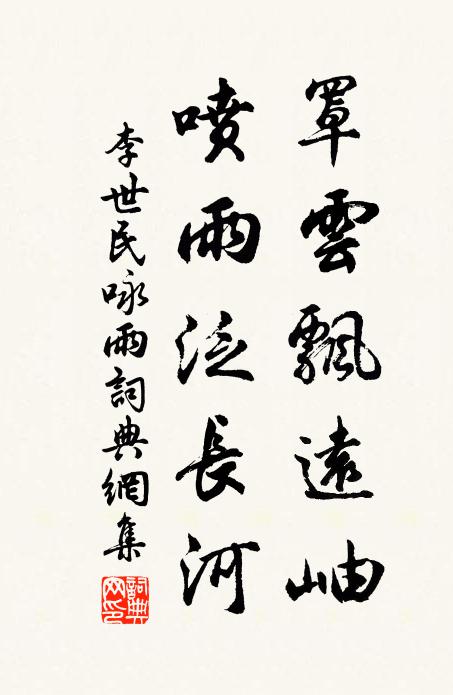 罩雲飄遠岫
噴雨泛長河
李世民咏雨詞典網集
詞典網印